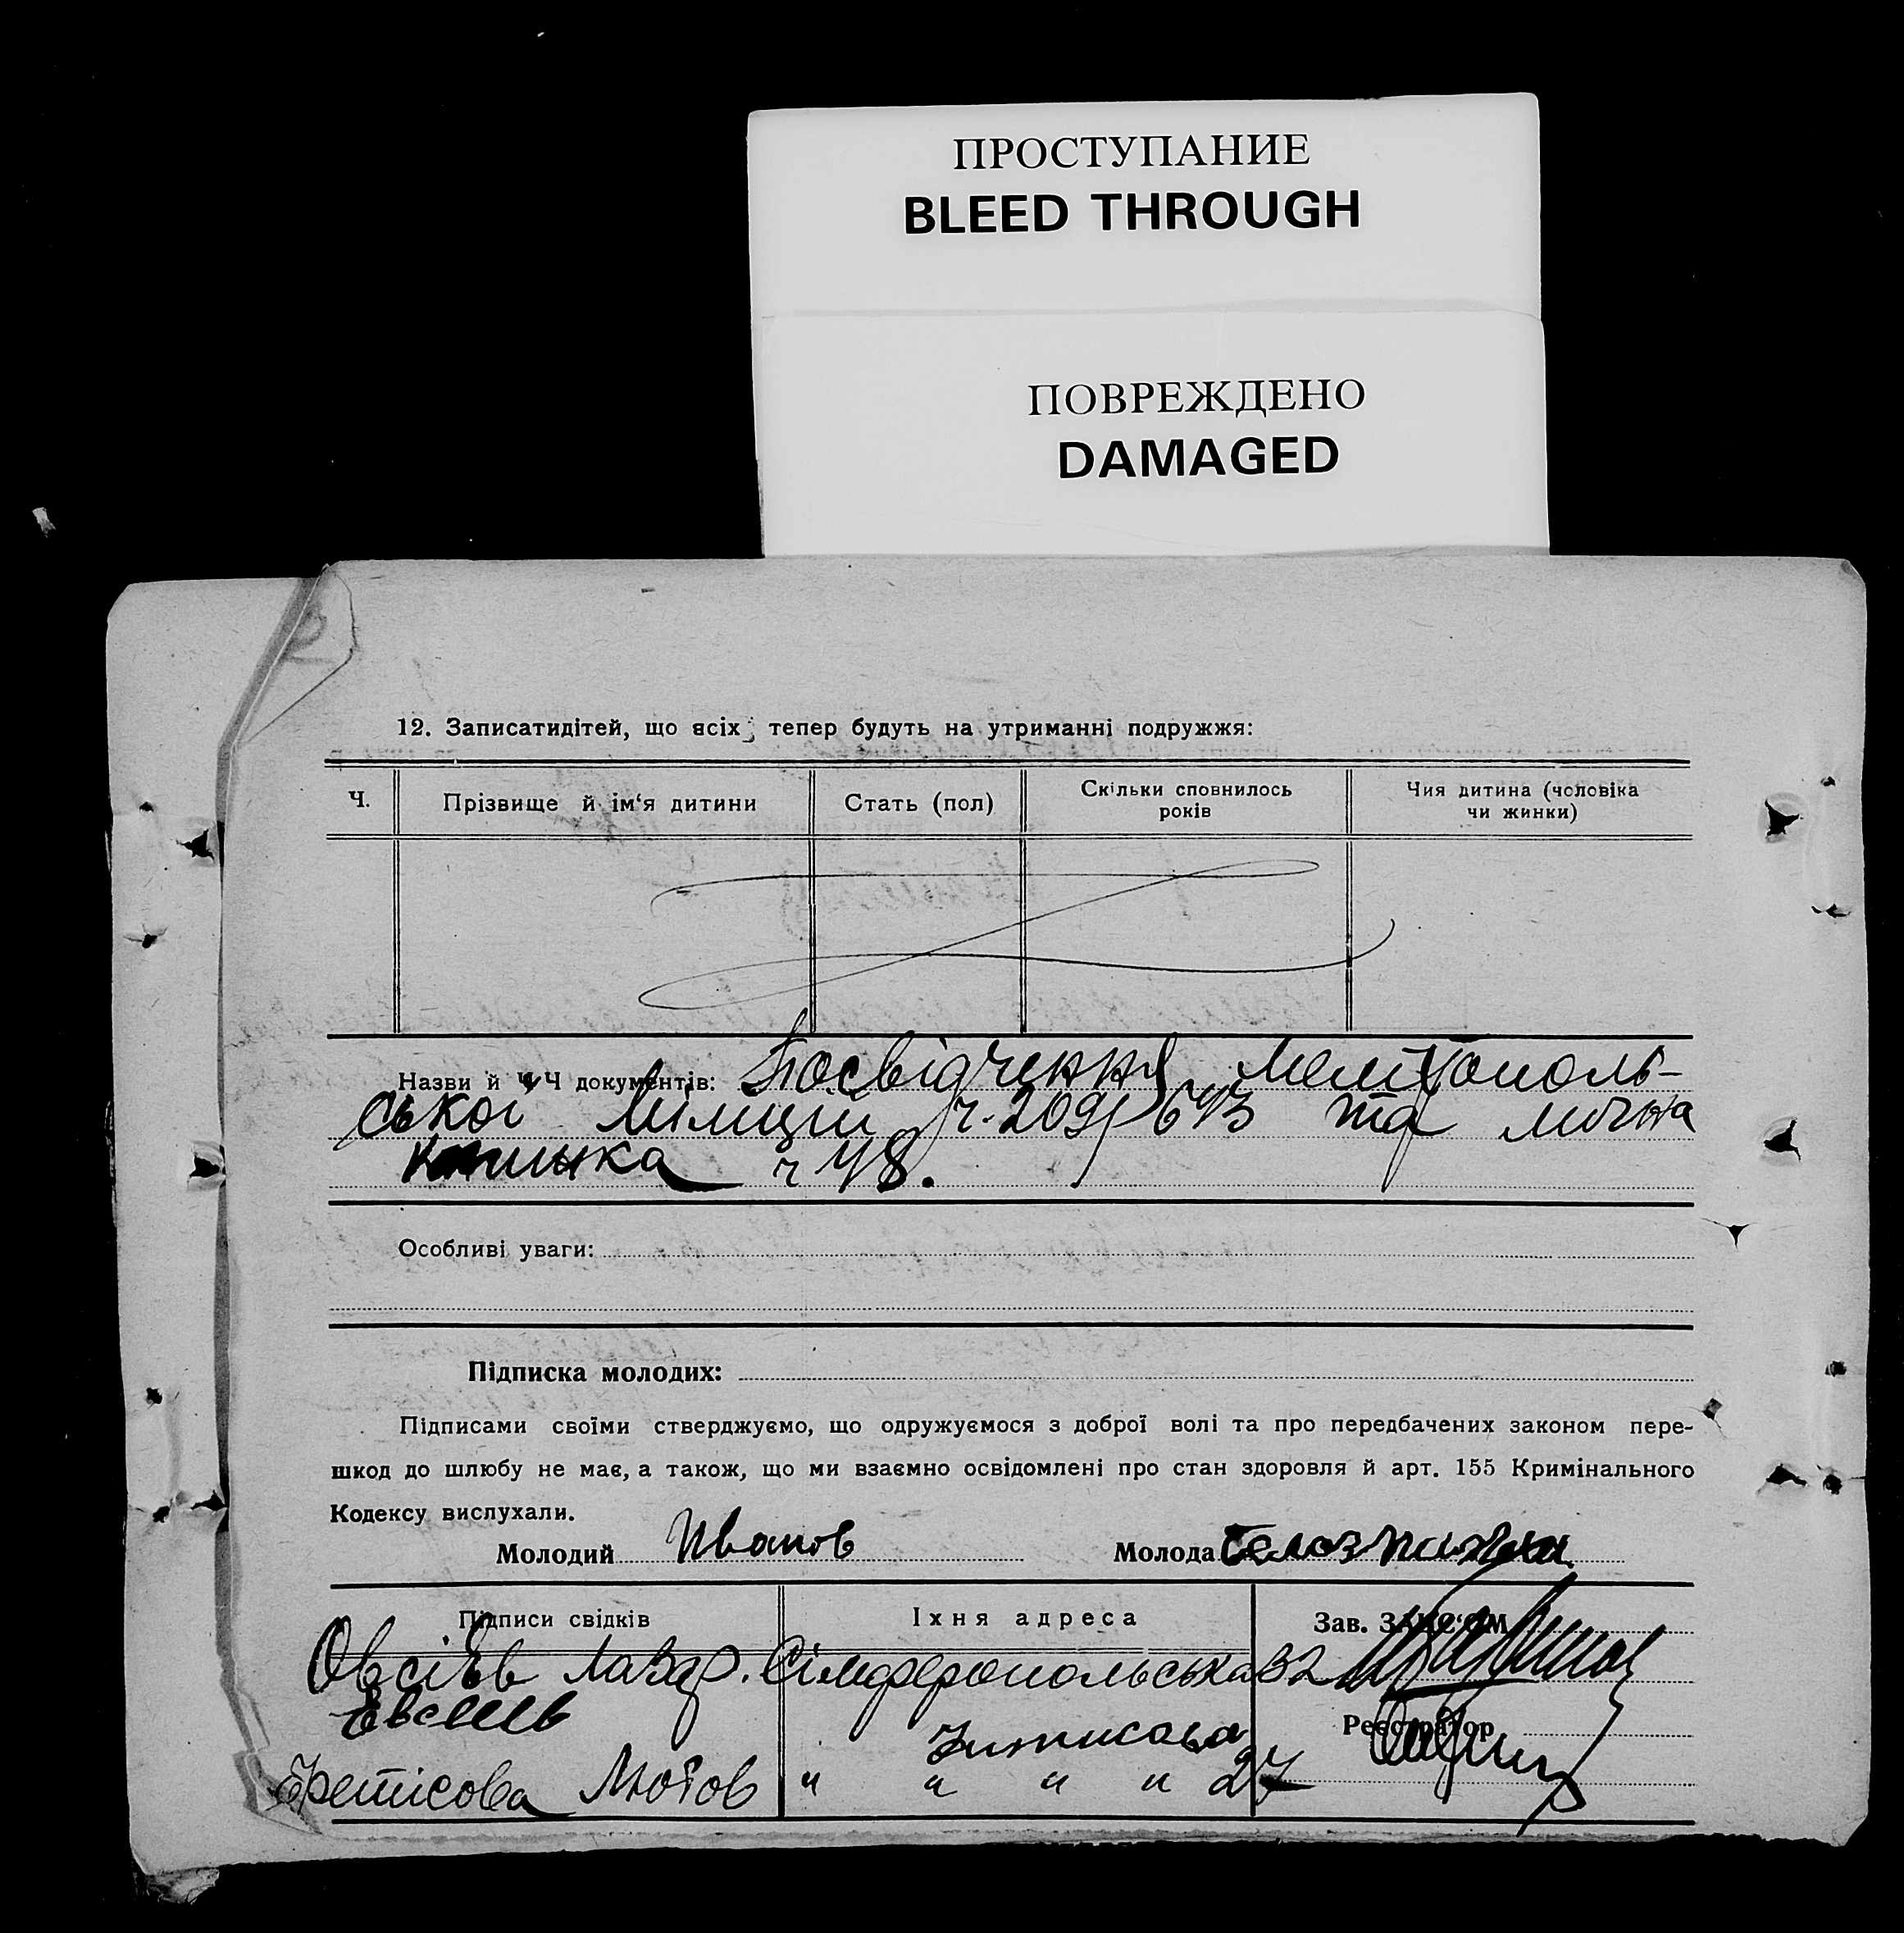 ПРОСТУПАНИЕ
BLEED THROUGH
ПОВРЕЖДЕНО
DAMAGED
12. Записатидітей, що всіх тепер будуть на утриманні подружжя:
Ч. Прізвище й ім‘я дитини Стать (пол) Скільки сповнилось років Чия дитина (чоловіка чи жинки)
Назви й Ч Ч документів: Посвідчення Мелітополь-
ської Міліції ч. 209/643 та лична
книжка ч 48.
Особливі уваги:
Підписка молодих:
Підписами своїми стверджуємо, що одружуємося з доброї волі та про передбачених законом пере-
шкод до шлюбу не має, а також, що ми взаємно освідомлені про стан здоровля й арт. 155 Кримінального
Кодексу вислухали.
Молодий Иванов Молода
Підписи свідків Їхня адреса Зав. ЗАГС‘ОМ
Овсієв Лазар. Сімферопольська 32
Реєстратор
Фетісова Любов " " " " 27